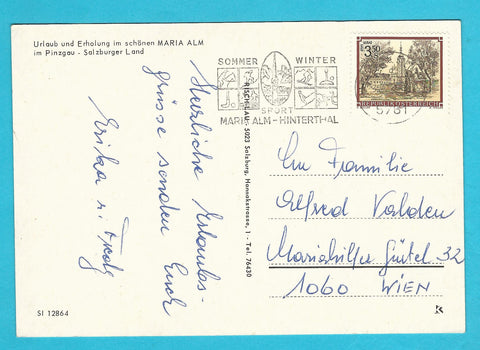 Urlaub und Erholung im schönen MARIA ALM
im Pinzgau - Salzburger Land
SOMMER WINTER
SPORT
MARIA ALM - HINTERTHAL
5761
3.50
REPUBLIK ÖSTERREICH
Herrliche Urlaubs-
grüsse senden Euch
Erika u. Fredy
5023 Salzburg, Hannakstrasse, 1 - Tel. 76430
An Familie
Alfred Valden
Mariahilfer Gürtel 32
1060 WIEN
SI 12864